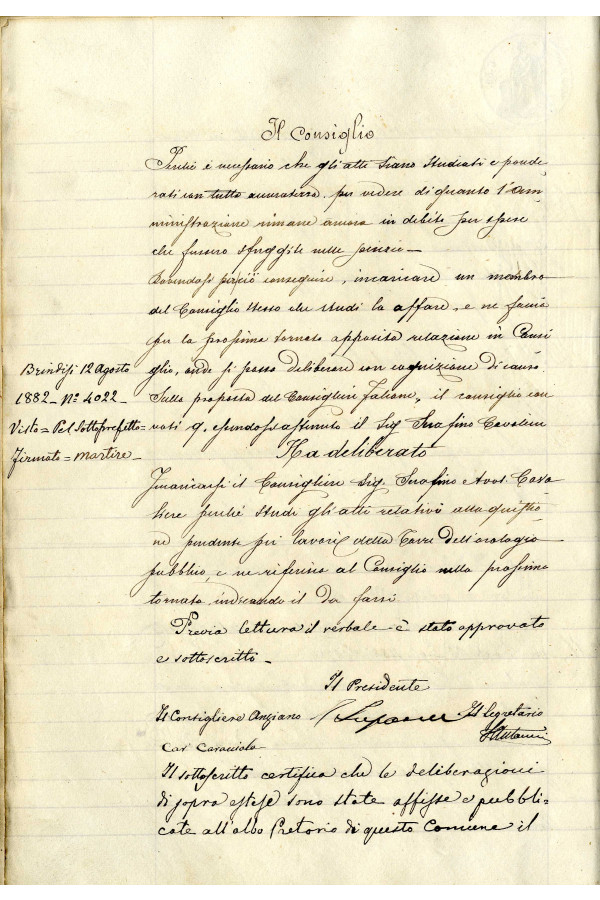 Il Consiglio
Perché è necessario che gli atti siano studiati e ponde
rati con tutta accuratezza, per vedere di quanto l'am
ministrazione rimane ancora in debito per spese
che fussero sfuggite nelle perizie —
Dovendosi perciò conseguire, incaricare un membro
del Consiglio stesso che studi lo affare, e ne faccia
per la prossima tornata apposita relazione in Consi
glio, onde si possa deliberare con cognizione di causa.
Sulla proposta del Consigliere Falcone, il consiglio con
voti 9, essendosi astenuto il Sig Serafino Cavaliere
Ha deliberato
Incaricarsi il Consigliere Sig. Serafino Avvt. Cava
liere perché studi gli atti relativi alla quistio
ne pendente pei lavori della Torre dell'orologio
pubblico, e ne riferisca al Consiglio nella prossima
tornata, indicando il da farsi
Previa lettura il verbale è stato approvato
e sottoscritto —
Il Presidente
Il Consigliere Anziano
Il Segretario
Car Caracciolo
Il sottoscritto certifica che le deliberazioni
di sopra estese sono state affisse e pubbli=
cate all'albo Pretorio di questo Comune il
Brindisi 12 Agosto
1882 — No 4022 —
Visto = Pel Sottoprefetto =
Firmato = Martire —